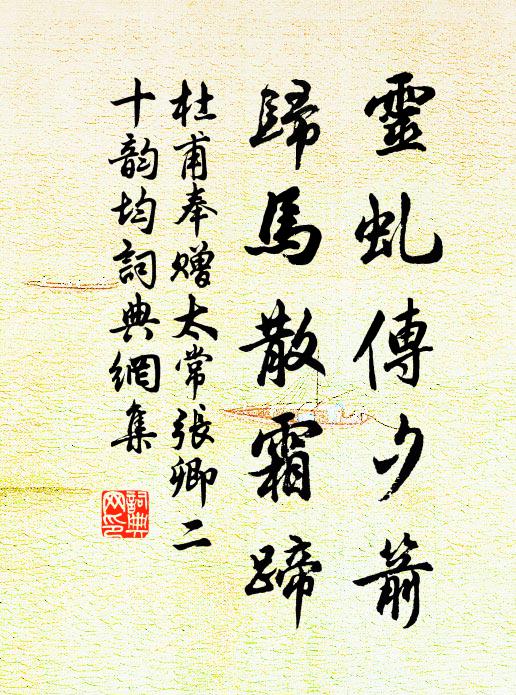 靈虬傳夕箭
歸馬散霜蹄
杜甫奉贈太常張卿二
十韵均詞典網集
詞典
网印